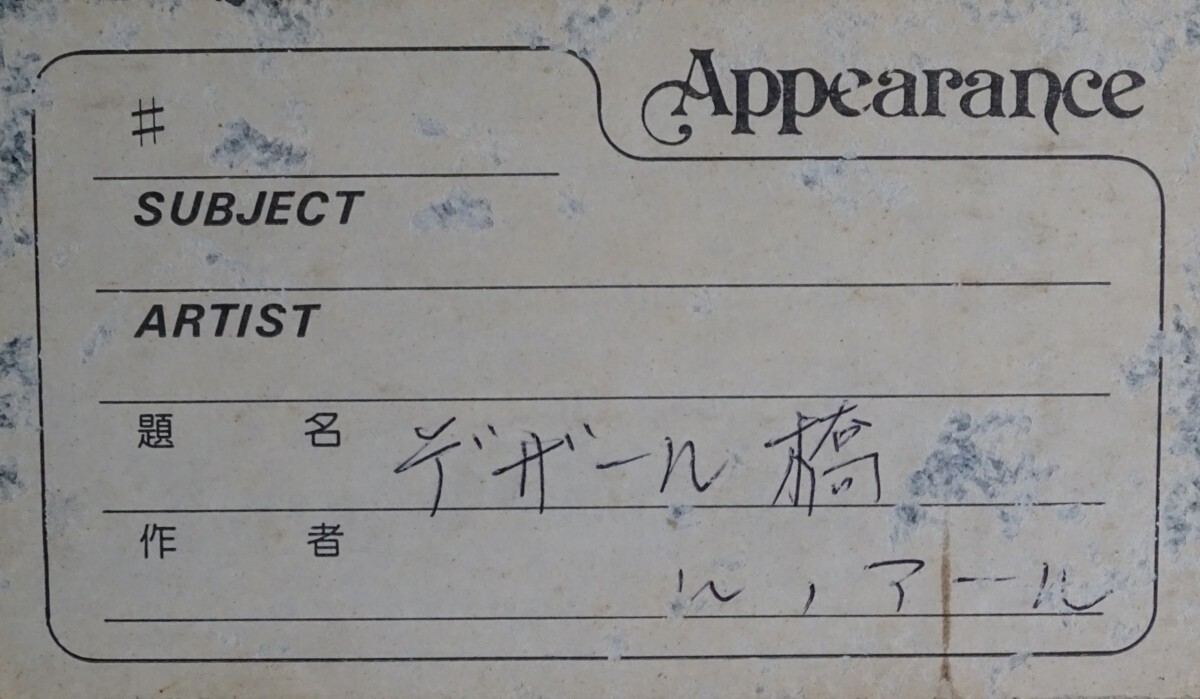 Appearance
#
SUBJECT
ARTIST
題 名 デザール橋
作 者 ルノアール